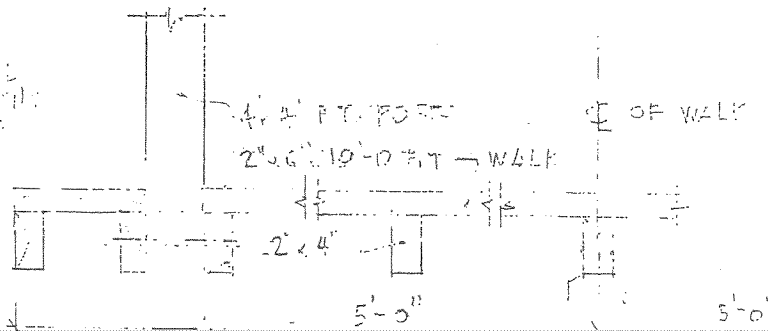 4"x 4" P.T. POSTS
℄ OF WALK
2"x 6"x 10'-0 P.T. WALK
2"x 4"
5'-0"
5'-0"